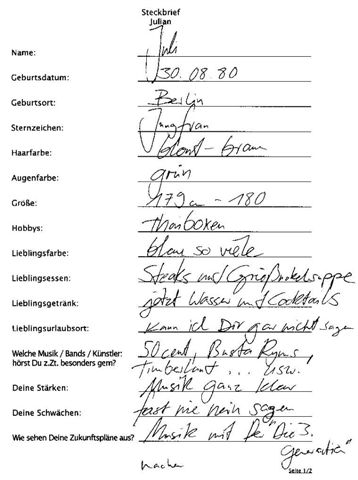 Steckbrief
Julian
Name: Juli
Geburtsdatum: 30.08.80
Geburtsort: Berlin
Sternzeichen: Jungfrau
Haarfarbe: blont-braun
Augenfarbe: grün
Größe: 179cm - 180
Hobbys: Thaiboxen
Lieblingsfarbe: blau so viele
Lieblingsessen: Steaks und Grießnockelsuppe
Lieblingsgetränk: jetzt Wasser und Cocktails
Lieblingsurlaubsort: Kann ich Dir gar nicht sagen
Welche Musik / Bands / Künstler: 50cent, Busta Ryms,
hörst Du z.Zt. besonders gem? Timberlant ... usw.
Deine Stärken: Musik ganz klar
Deine Schwächen: fast nie nein sagen
Wie sehen Deine Zukunftspläne aus? Musik mit der "Die 3.
Generation"
machen
Seite 1/2